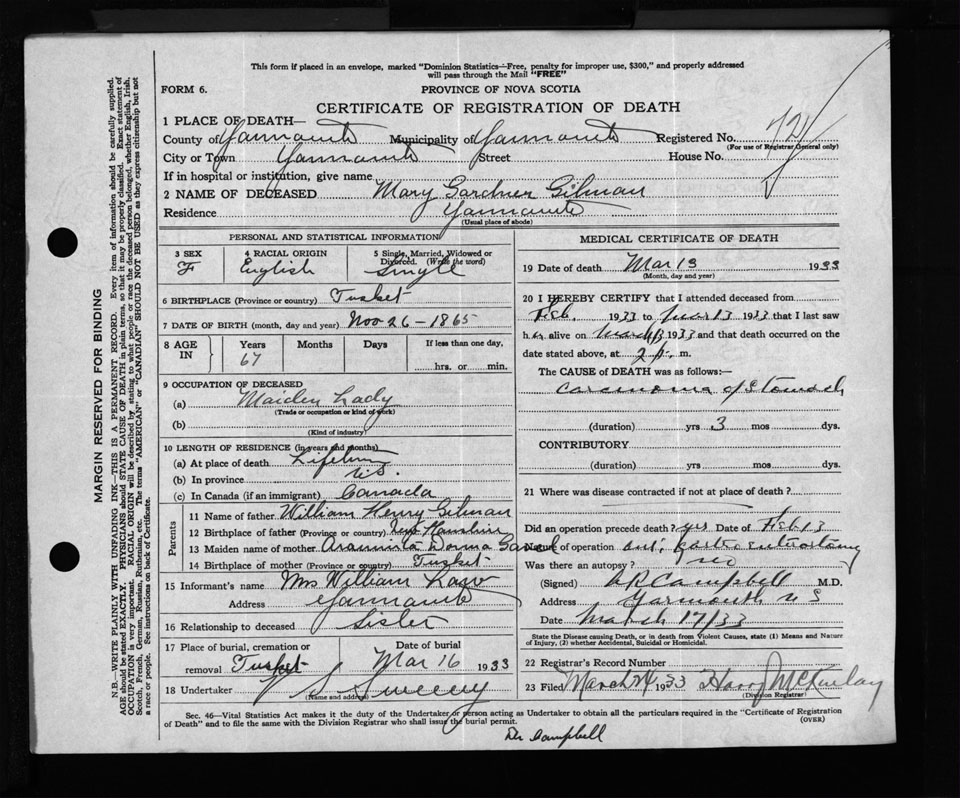 This form if placed in an envelope, marked "Dominion Statistics—Free, penalty for improper use, $300," and properly addressed
will pass through the Mail "FREE"
FORM 6.
PROVINCE OF NOVA SCOTIA
CERTIFICATE OF REGISTRATION OF DEATH
1 PLACE OF DEATH—
County of Yarmouth Municipality of Yarmouth Registered No. 72
(For use of Registrar General only)
City or Town Yarmouth Street House No.
If in hospital or institution, give name
2 NAME OF DECEASED Mary Gardner Gilman
Residence Yarmouth
(Usual place of abode)
MARGIN RESERVED FOR BINDING
N.B.—WRITE PLAINLY WITH UNFADING INK—THIS IS A PERMANENT RECORD. Every item of information should be carefully supplied.
AGE should be stated EXACTLY. PHYSICIANS should STATE CAUSE OF DEATH in plain terms, so that it may be properly classified. Exact statement of
OCCUPATION is very important. RACIAL ORIGIN will be described by stating to what people or race the deceased person belonged, whether English, Irish,
Scotch, French, German, Russian, Ruthenian, etc. The terms "AMERICAN" or "CANADIAN" SHOULD NOT BE USED as they express citizenship but not
a race or people. See instructions on back of Certificate.
PERSONAL AND STATISTICAL INFORMATION
3 SEX F
4 RACIAL ORIGIN English
5 Single, Married, Widowed or
Divorced. (Write the word)
Single
6 BIRTHPLACE (Province or country) Tusket
7 DATE OF BIRTH (month, day and year) Nov 26 - 1865
8 AGE IN Years 67 Months Days If less than one day,
hrs. or min.
9 OCCUPATION OF DECEASED
(a) Maiden Lady
(Trade or occupation or kind of work)
(b)
(Kind of industry)
10 LENGTH OF RESIDENCE (in years and months)
(a) At place of death Lifetime
(b) In province N.S.
(c) In Canada (if an immigrant) Canada
Parents
11 Name of father William Henry Gilman
12 Birthplace of father (Province or country) New Hampshire
13 Maiden name of mother
14 Birthplace of mother (Province or country) Tusket
15 Informant's name Mrs William
Address Yarmouth
16 Relationship to deceased Sister
17 Place of burial, cremation or
removal Tusket
Date of burial
Mar 16 1933
18 Undertaker Sweeny
(Name and address)
MEDICAL CERTIFICATE OF DEATH
19 Date of death Mar 13 1933
(Month, day and year)
20 I HEREBY CERTIFY that I attended deceased from
Feb. 1933 to Mar 13 1933 that I last saw
her alive on March 13 1933 and that death occurred on the
date stated above, at 2 p. m.
The CAUSE of DEATH was as follows:
Carcinoma of Stomach
(duration) yrs 3 mos dys.
CONTRIBUTORY
(duration) yrs. mos. dys.
21 Where was disease contracted if not at place of death?
Did an operation precede death? yes Date of Feb 13
Nature of operation ant. gastro enterostomy
Was there an autopsy? no
(Signed) Campbell M.D.
Address Yarmouth N S
Date March 17/33
State the Disease causing Death, or in death from Violent Causes, state (1) Means and Nature
of Injury, (2) whether Accidental, Suicidal or Homicidal.
22 Registrar's Record Number
23 Filed March 24 1933 Harry McKinlay
(Division Registrar)
Sec. 46—Vital Statistics Act makes it the duty of the Undertaker or person acting as Undertaker to obtain all the particulars required in the "Certificate of Registration
of Death" and to file the same with the Division Registrar who shall issue the burial permit.
(OVER)
Dr Campbell